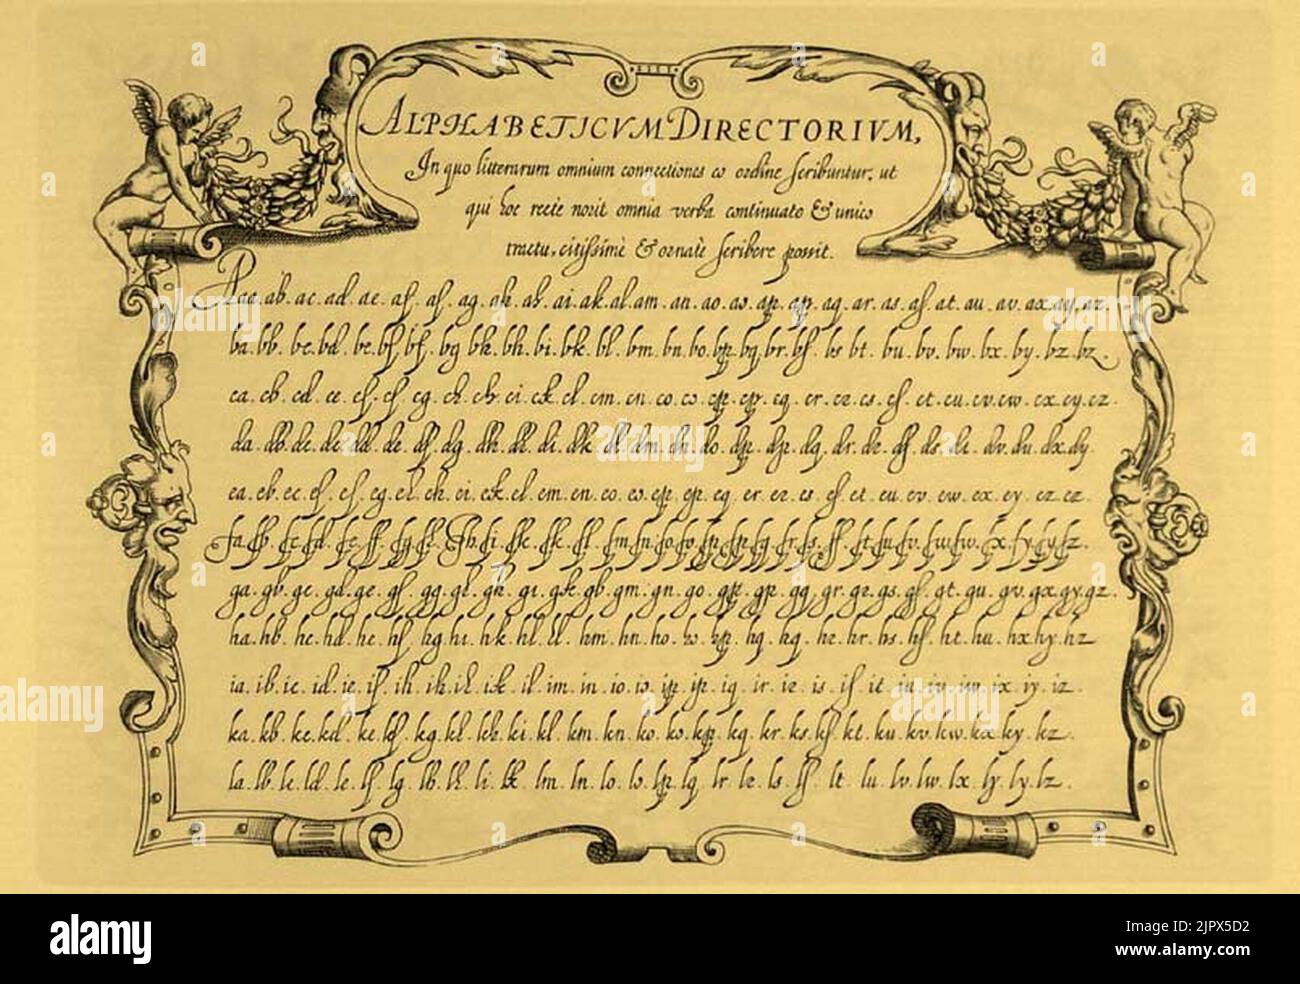 ALPHABETICVM DIRECTORIVM,
In quo litterarum omnium connectiones eo ordine scribuntur, ut
qui hoc recte norit omnia verba continuato & unico
tractu, citissimè & ornatè scribere possit.
Aaa. ab. ac. ad. ae. af. aſ. ag. ah. ah. ai. ak. al. am. an. ao. aw. ap. ap. aq. ar. as. aſ. at. au. av. ax. ay. az.
ba. bb. bc. bd. be. bf. bſ. bg. bh. bh. bi. bk. bl. bm. bn. bo. bp. bq. br. bſ. bs. bt. bu. bv. bw. bx. by. bz. bz.
ca. cb. cd. ce. cf. cſ. cg. ch. ch. ci. ck. cl. cm. cn. co. cw. cp. cp. cq. cr. cz. cs. cſ. ct. cu. cv. cw. cx. cy. cz.
da. db. dc. de. dd. de. df. dg. dh. dl. di. dk. dl. dm. dn. do. dp. dp. dq. dr. dz. dſ. ds. dt. dv. du. dx. dy.
ea. eb. ec. ef. eſ. eg. el. eh. ei. ek. el. em. en. eo. ew. ep. ep. eq. er. ez. es. eſ. et. eu. ev. ew. ex. ey. ez. ez.
ga. gb. gc. gd. ge. gf. gg. gl. gh. gi. gk. gb. gm. gn. go. gp. gp. gq. gr. gz. gs. gſ. gt. gu. gv. gx. gy. gz.
ha. hb. hc. hd. he. hf. hg. hi. hk. hl. hl. hm. hn. ho. hw. hp. hq. hq. hz. hr. hs. hſ. ht. hu. hx. hy. hz
ia. ib. ic. id. ie. if. ih. ih. il. ik. il. im. in. io. iw. ip. ip. iq. ir. iz. is. iſ. it. iu. iv. iw. ix. iy. iz.
ka. kb. kc. kd. ke. kf. kg. kl. kh. ki. kl. km. kn. ko. kw. kp. kq. kr. ks. kſ. kt. ku. kv. kw. kx. ky. kz.
la. lb. lc. ld. le. lf. lg. lh. ll. li. lk. lm. ln. lo. lw. lp. lq. lr. lz. ls. lſ. lt. lu. lv. lw. lx. ly. ly. lz.
alamy
alamy
Image ID: 2JPX5D2
www.alamy.com